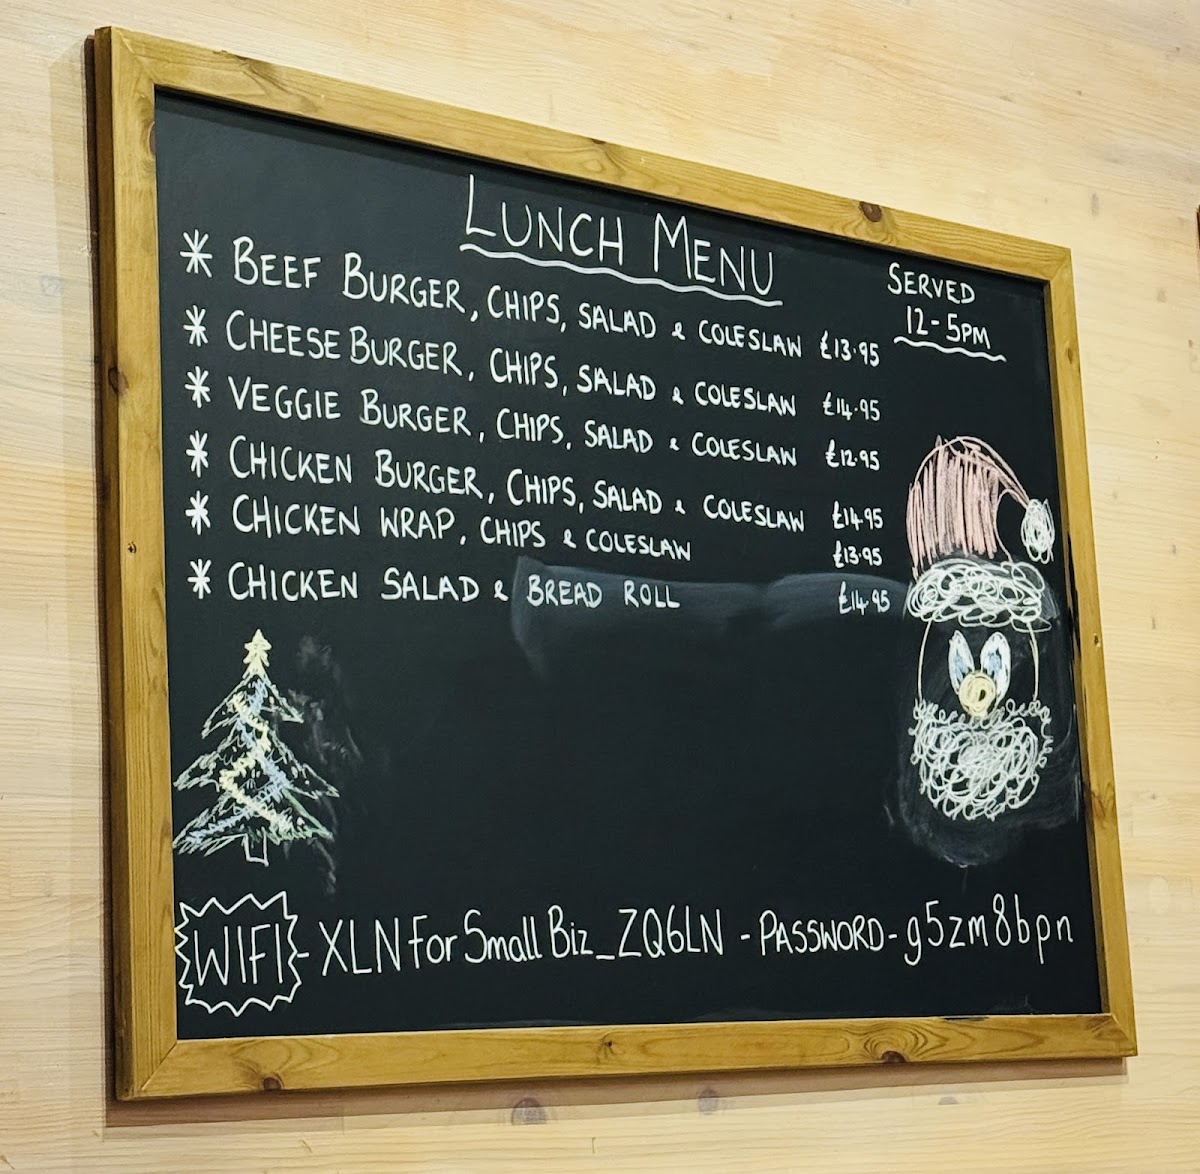 LUNCH MENU
SERVED
12-5PM
* BEEF BURGER, CHIPS, SALAD & COLESLAW £13.95
* CHEESE BURGER, CHIPS, SALAD & COLESLAW £14.95
* VEGGIE BURGER, CHIPS, SALAD & COLESLAW £12.95
* CHICKEN BURGER, CHIPS, SALAD & COLESLAW £14.95
* CHICKEN WRAP, CHIPS & COLESLAW £13.95
* CHICKEN SALAD & BREAD ROLL £14.95
WIFI - XLN For Small Biz_ZQ6LN - PASSWORD - g5zm8bpn